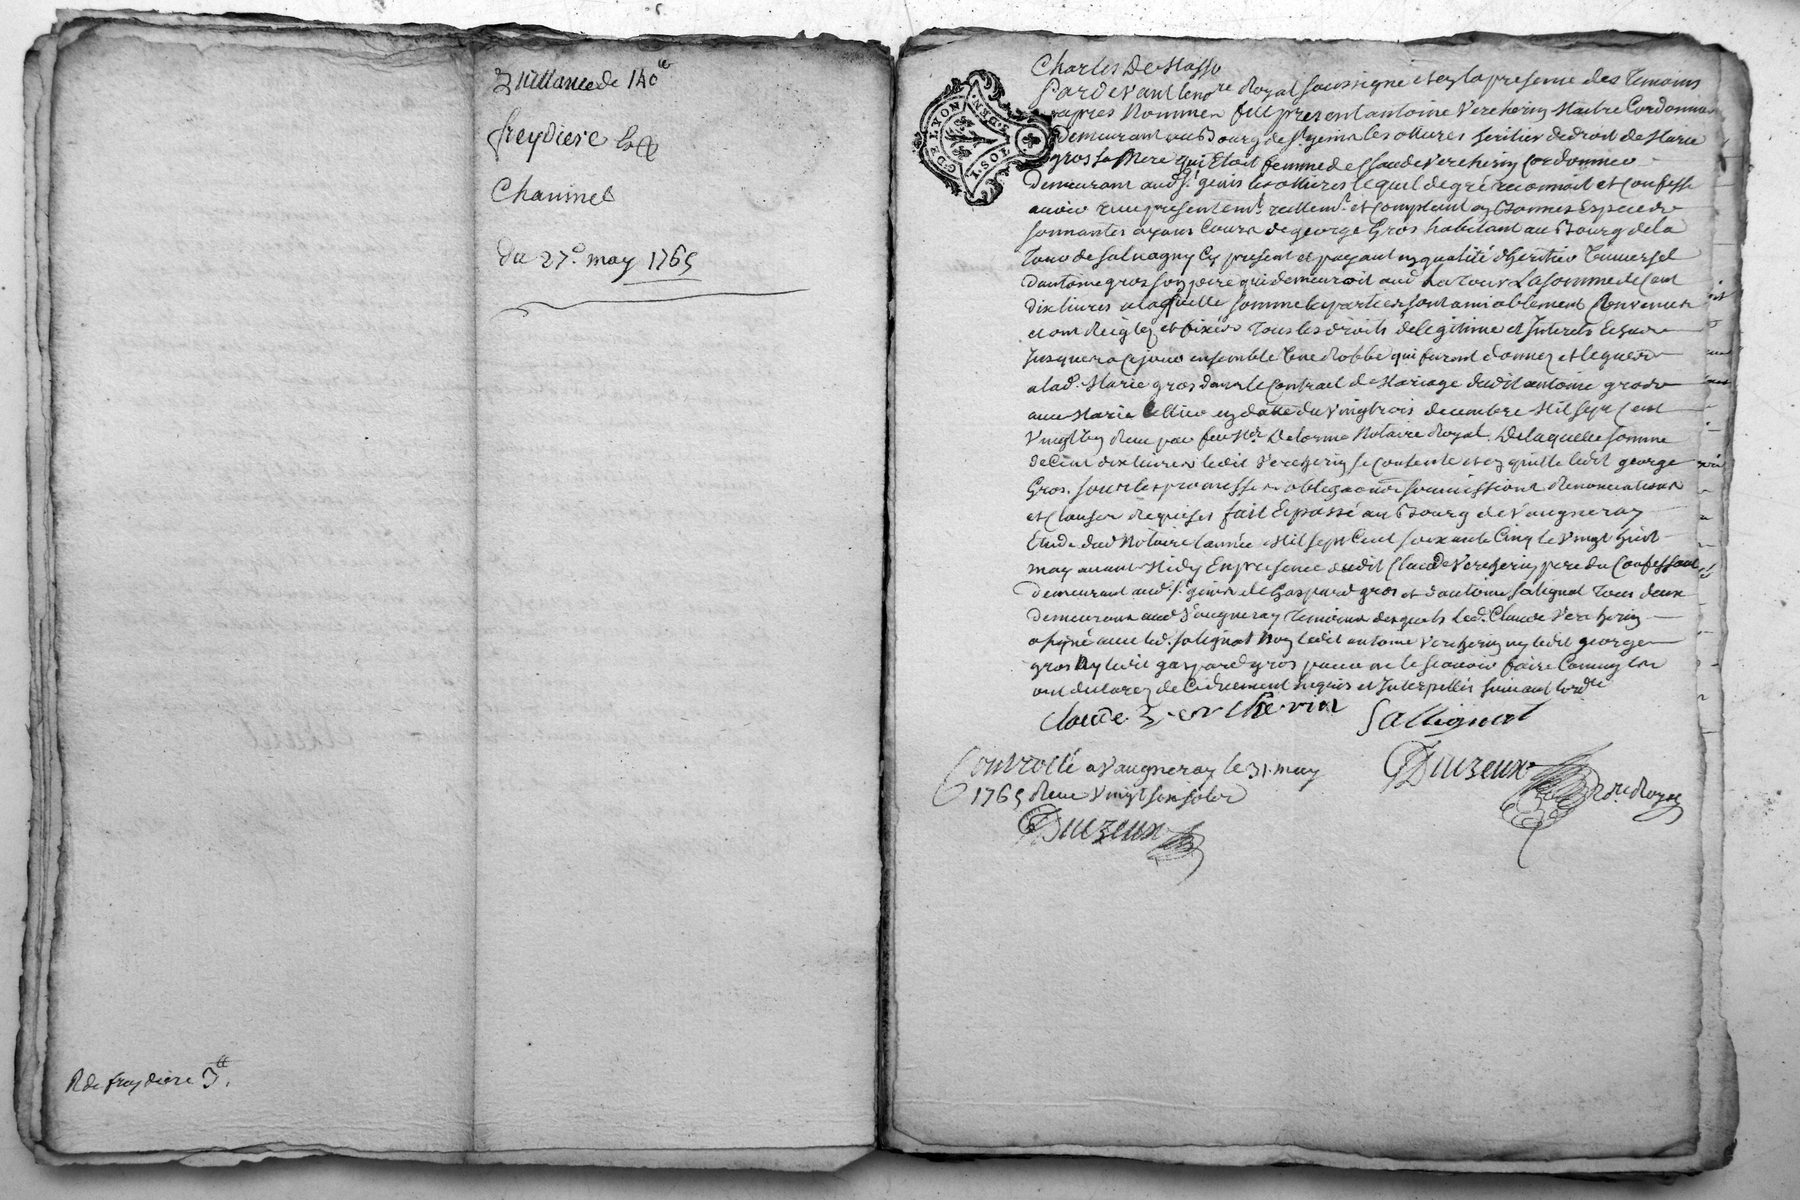 Quittance de 140 ₶
freydiere
Chaumet
du 27e. may 1765
R de freydiere 3 ₶.
G. DE LYON
1. SOL
2. DEN.
Pardevant le no.re Royal soussigné et en la presence des temoins
apres Nommés fut present antoine Vercherin Maitre Cordonnier
demeurant au Bourg de st. genis les ollieres heritier de droit de Marie
gros sa Mere qui Etoit femme de Claude Vercherin Cordonnier
demeurant aud. st. genis les ollieres lequel de gré reconnoit et Confesse
avoir reçu presentemt. reellemt. et comptant en Bonnes Especes
sonnantes ayans Cours de george Gros habitant au Bourg de la
Tour de salvagny Cy present et payant en qualité d'heritier Universel
d'antoine gros son pere qui demeuroit aud. La Tour La somme de Cent
dix livres a laquelle somme les parties sont amiablement Convenues
et ont Reiglez et fixés Tous les droits de legitime et Interets Echus
Jusques a ce jour ensemble Une Robbe qui furent donnez et leguès
a lad. Marie gros dans le Contract de Mariage dudit antoine gros
avec Marie en datte du Vingt trois decembre Mil sept Cent
Vingt Un Reçu par feu Me. Delorme Notaire Royal. De laquelle somme
de Cent dix livres ledit Vercherin se Contente et en quitte ledit george
Gros. sous les promesses obligations soumissions Renonciations
et Clauses Requises fait Et passé au Bourg de Vaugneray
Etude dud. Notaire l'année Mil sept Cent soixante Cinq le Vingt huit
may avant Midy En presence dudit Claude Vercherin pere du Confessant
demeurant aud. st. genis de Gaspard gros et d'antoine salignat Tous deux
demeurans aud. Vaugneray Temoins desquels led. Claude Vercherin
a signé avec led. salignat Non ledit antoine Vercherin ny ledit george
gros Ny ledit gaspard gros pour ne le scavoir faire Comme ils
ont declarez de Ce duement Enquis et Interpellés suivant l'ord.ce
claude Verchervin Sallignat
Controllé a Vaugneray le 31. may
1765 Reçu Vingt six sols
Duzeux
Duzeux Nre. Royal